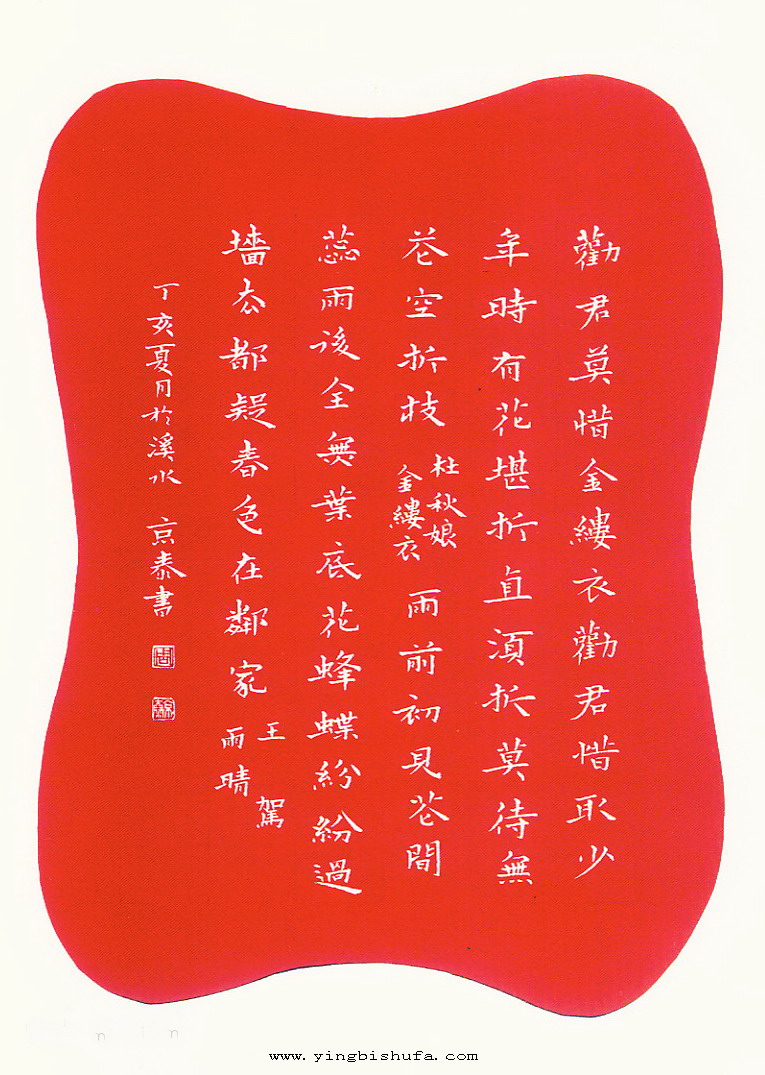 勸君莫惜金縷衣勸君惜取少
年時有花堪折直須折莫待無
花空折枝 杜秋娘 金縷衣 雨前初見花間
蕊雨後全無葉底花蜂蝶紛紛過
墻去都疑春色在鄰家 王駕 雨晴
丁亥夏月於溪水 京泰書
www.yingbishufa.com